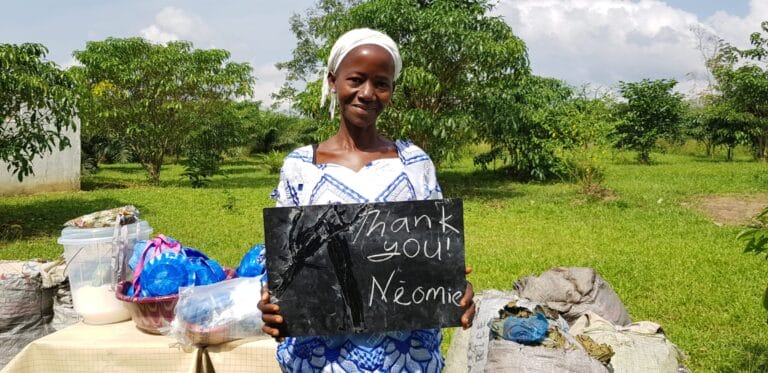 Thank
you!
Néomie